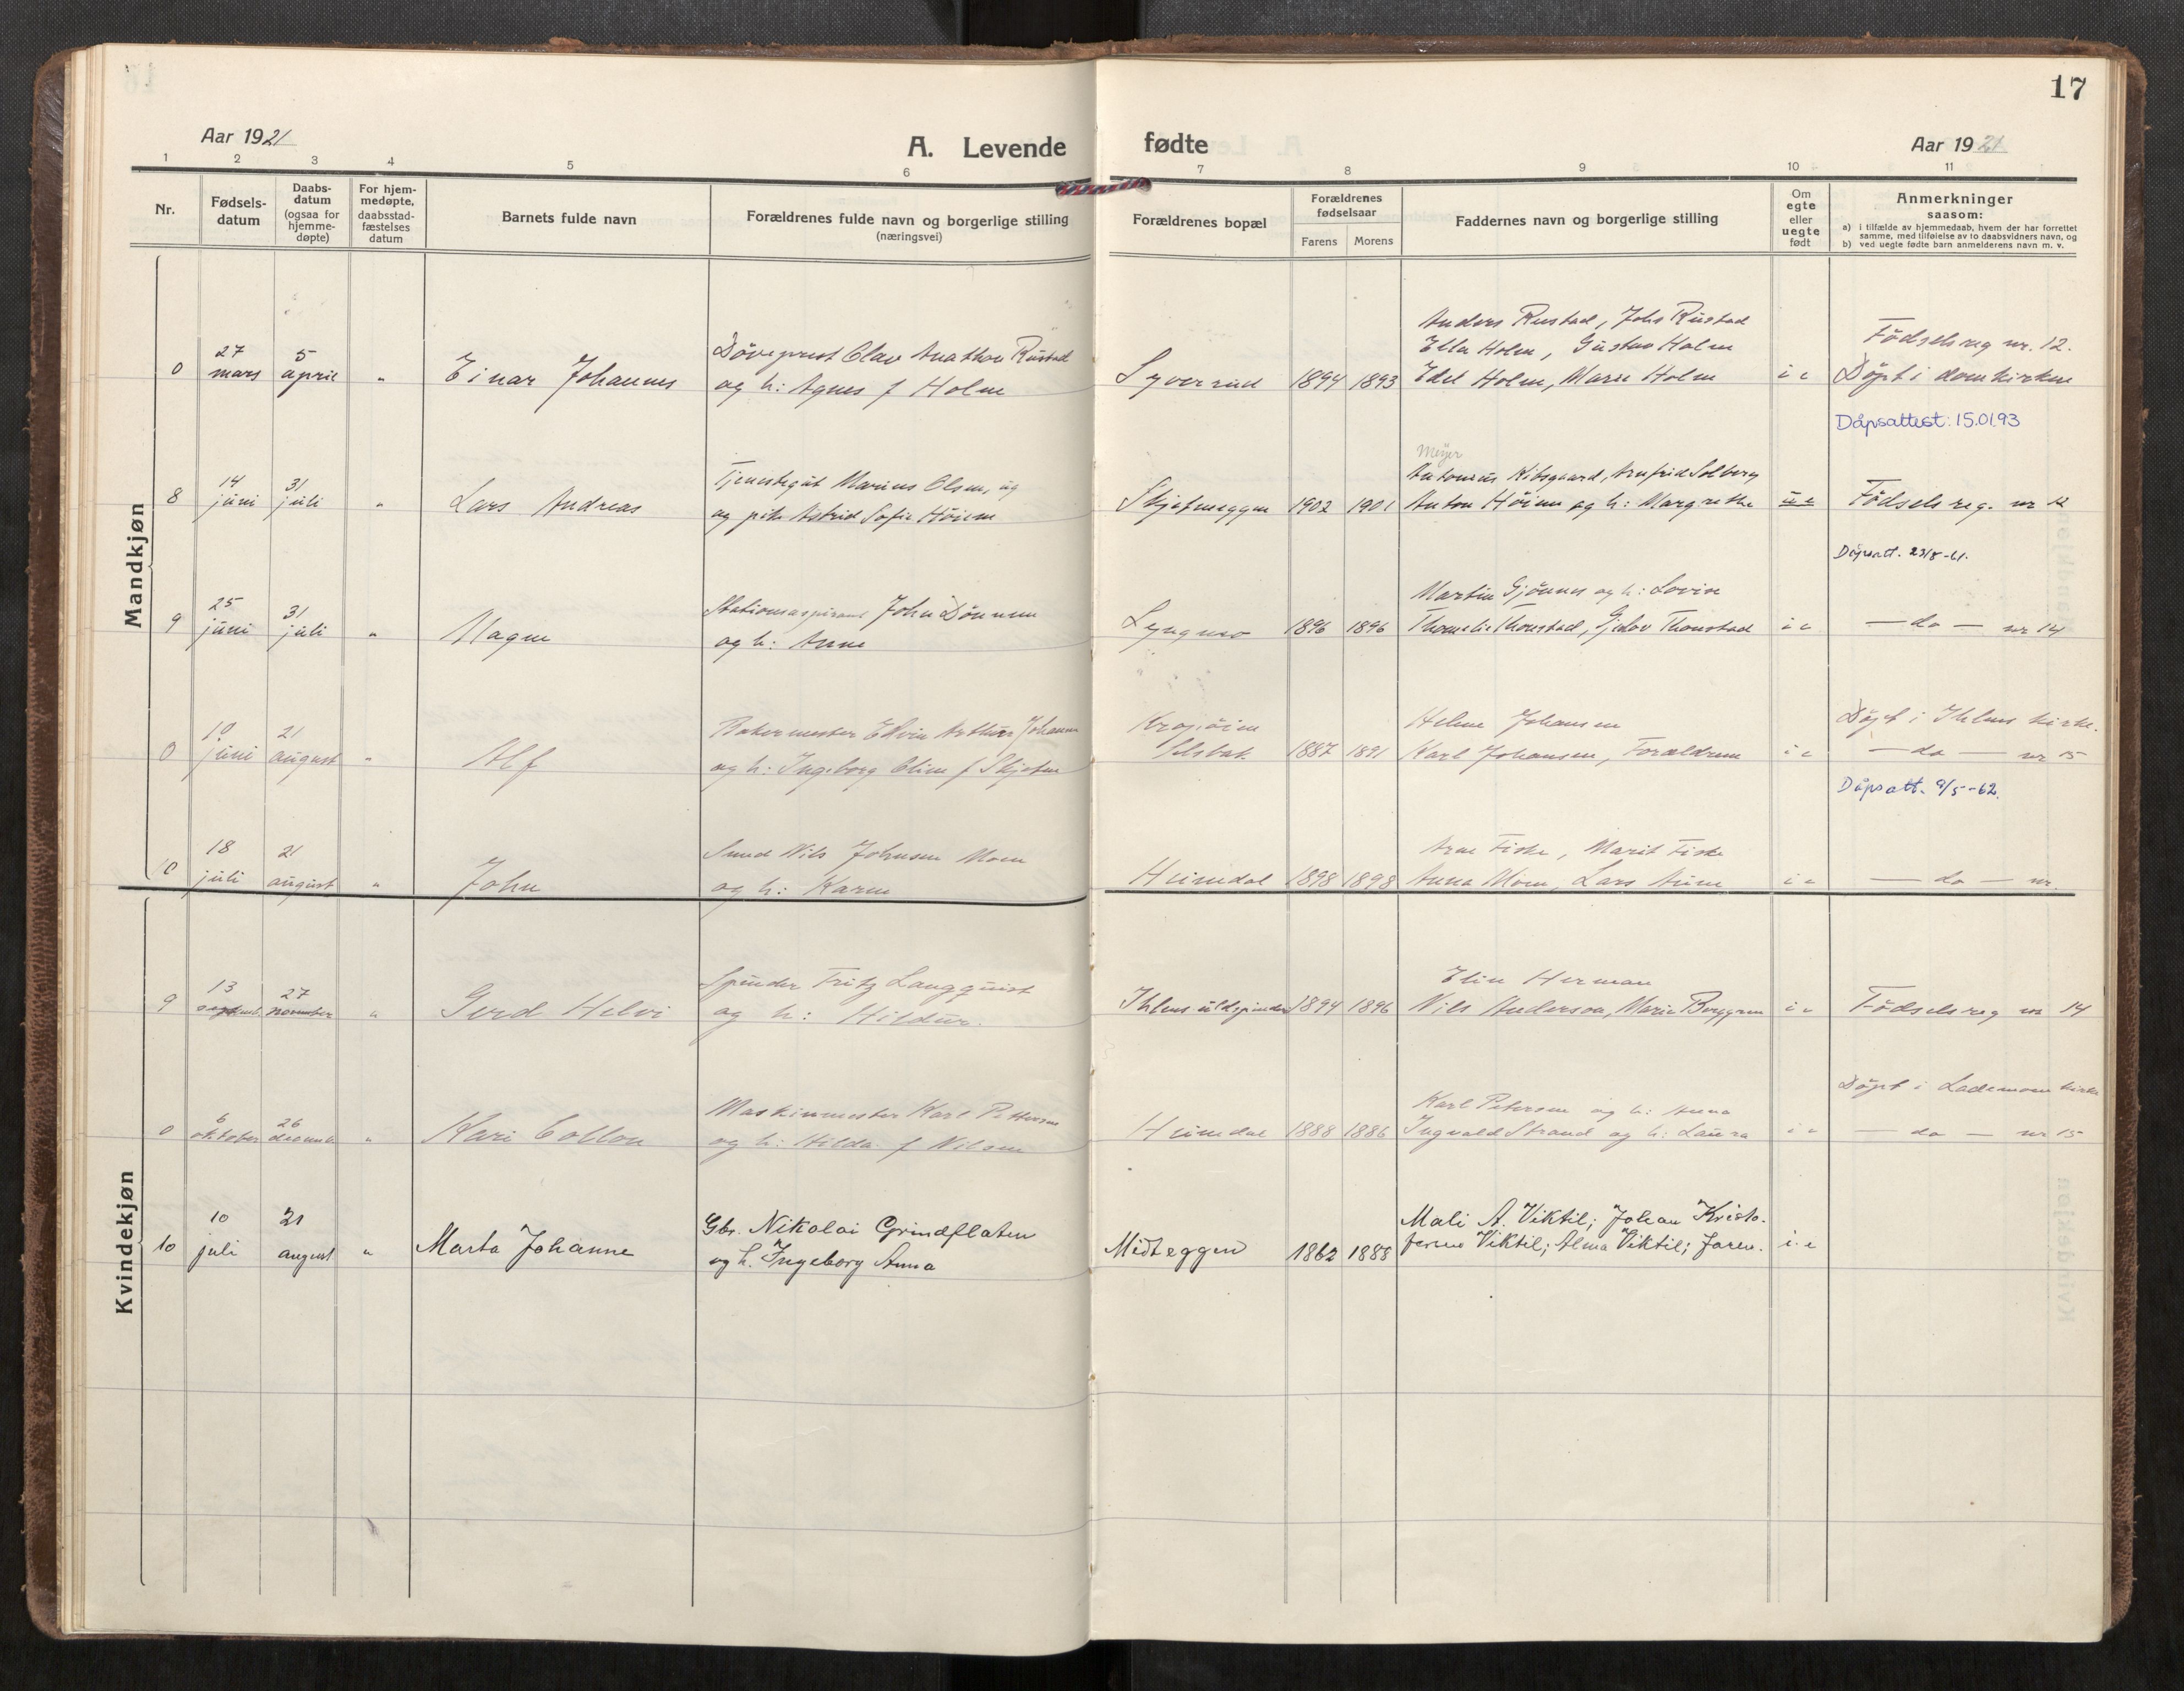 17
Aar 1921
A. Levende
fødte
Aar 1921
1 2 3 4 5 6 7 8 9 10 11
Nr.
Fødsels-
datum
Daabs-
datum
(ogsaa for
hjemme-
døpte)
For hjem-
medøpte,
daabsstad-
fæstelses
datum
Barnets fulde navn
Forældrenes fulde navn og borgerlige stilling
(næringsvei)
Forældrenes bopæl
Forældrenes
fødselsaar
Farens Morens
Faddernes navn og borgerlige stilling
Om
egte
eller
uegte
født
Anmerkninger
saasom:
a) i tilfælde av hjemmedaab, hvem der har forrettet
samme, med tilføielse av to daabsvidners navn, og
b) ved uegte fødte barn anmelderens navn m. v.
Mandkjøn
0
27
mars
5
april
"
Einar Johannes
Döveprest Olav Anathon Rustad
og h: Agnes f Holm
Syverud
1894 1893
Anders Rustad, Johs Rustad
Ella Holm, Gustav Holm
Edel Holm, Marie Holm
i e
Födselsreg nr. 12.
Döpt i domkirken
Dåpsattest: 15.01.93
8
14
juni
31
juli
"
Lars Andreas
Tjenestegut Marius Olsen, ug
og pike Astrid Sofie Höiem
Skjetneeggen
1902 1901
Meyer
Antonius Ribsgaard, Arnfrid Solberg
Anton Höiem og h: Margrethe
u e
Födselsreg. nr 12
Dåpsatt. 23/8-61.
9
25
juni
31
juli
"
Magne
Stationsaspirant John Dönnem
og h: Anne
Lyngmo
1896 1896
Martin Gjönnes og h: Lovise
Thomelie Thonstad, Gjelov Thonstad
i e
— do — nr 14
0
10
juni
21
august
"
Alf
Bakermester Edvin Arthur Johansen
og h: Ingeborg Oline f Skjetne
Selsbak
1887 1891
Helene Johansen
Karl Johansen, Forældrene
i e
Döpt i Ihlens kirke.
— do — nr 15
Dåpsatt. 9/5-62.
10
18
juli
21
august
"
John
Smed Nils Johnsen Moen
og h: Karen
Heimdal
1898 1898
Arne Fiske, Marit Fiske
Anna Moen, Lars Aune
i e
— do — nr.
Kvindekjøn
9
13
septemb.
27
november
"
Gerd Helvi
Spinder Fritz Langquist
og h: Hildur.
Ihlens uldspinderi
1894 1896
Elin Herman
Nils Anderson, Maria Berggren
i e
Födselsreg nr 14
0
6
oktober
26
decemb
"
Kari Collon
Maskinmester Karl Pettersen
og h: Hilda f Nilsen
Heimdal
1888 1886
Karl Petersen og h: Anna
Ingvald Strand og h: Laura
i e
Döpt i Lademoen kirke
— do — nr 15
10
10
juli
21
august
"
Marta Johanne
Gbr. Nikolai Grindflaten
og h. Ingeborg Anna
Midteggen
1862 1888
Mali A. Viktil; Johan Kristo-
fersen Viktil; Alma Viktil; Foreu.
i. e